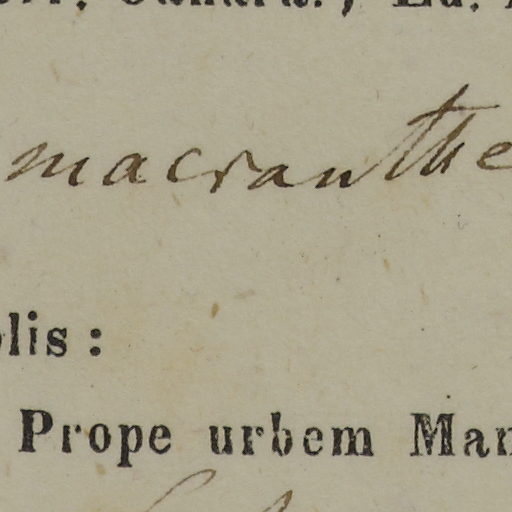 macranthe
lis :
Prope urbem Man